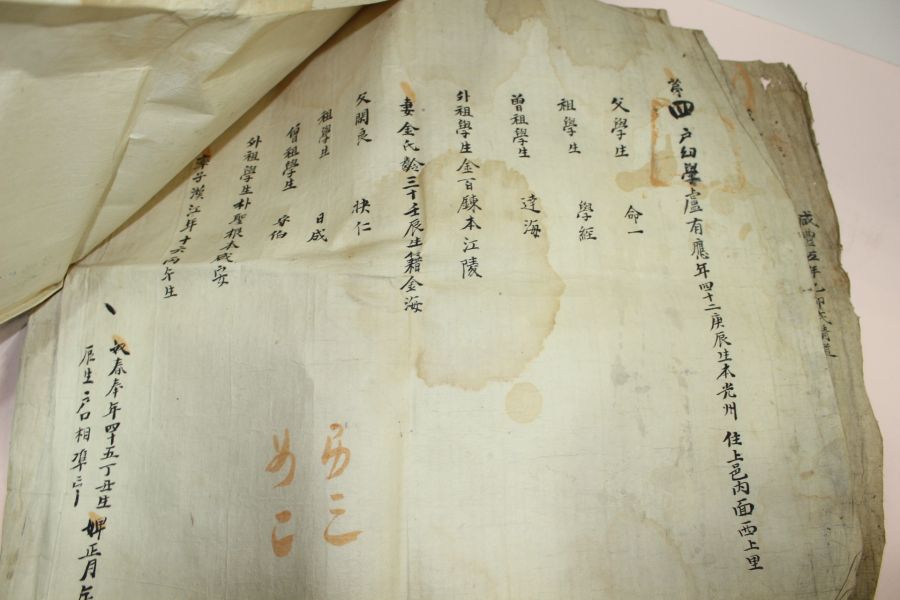 咸豊五年乙卯式
第四戶幼學盧有應年四十二庚辰生本光州 住上邑內面西上里
父學生 命一
祖學生 學經
曾祖學生 達海
外祖學生金百鍊本江陵
妻金氏齡三十壬辰生籍金海
父閑良 扶仁
祖學生 日成
曾祖學生 守伯
外祖學生朴聖根本咸安
率子漢江年十六丙午生
奴春奉年四十五丁丑生 婢正月年
辰生 戶口相準
男三
女二